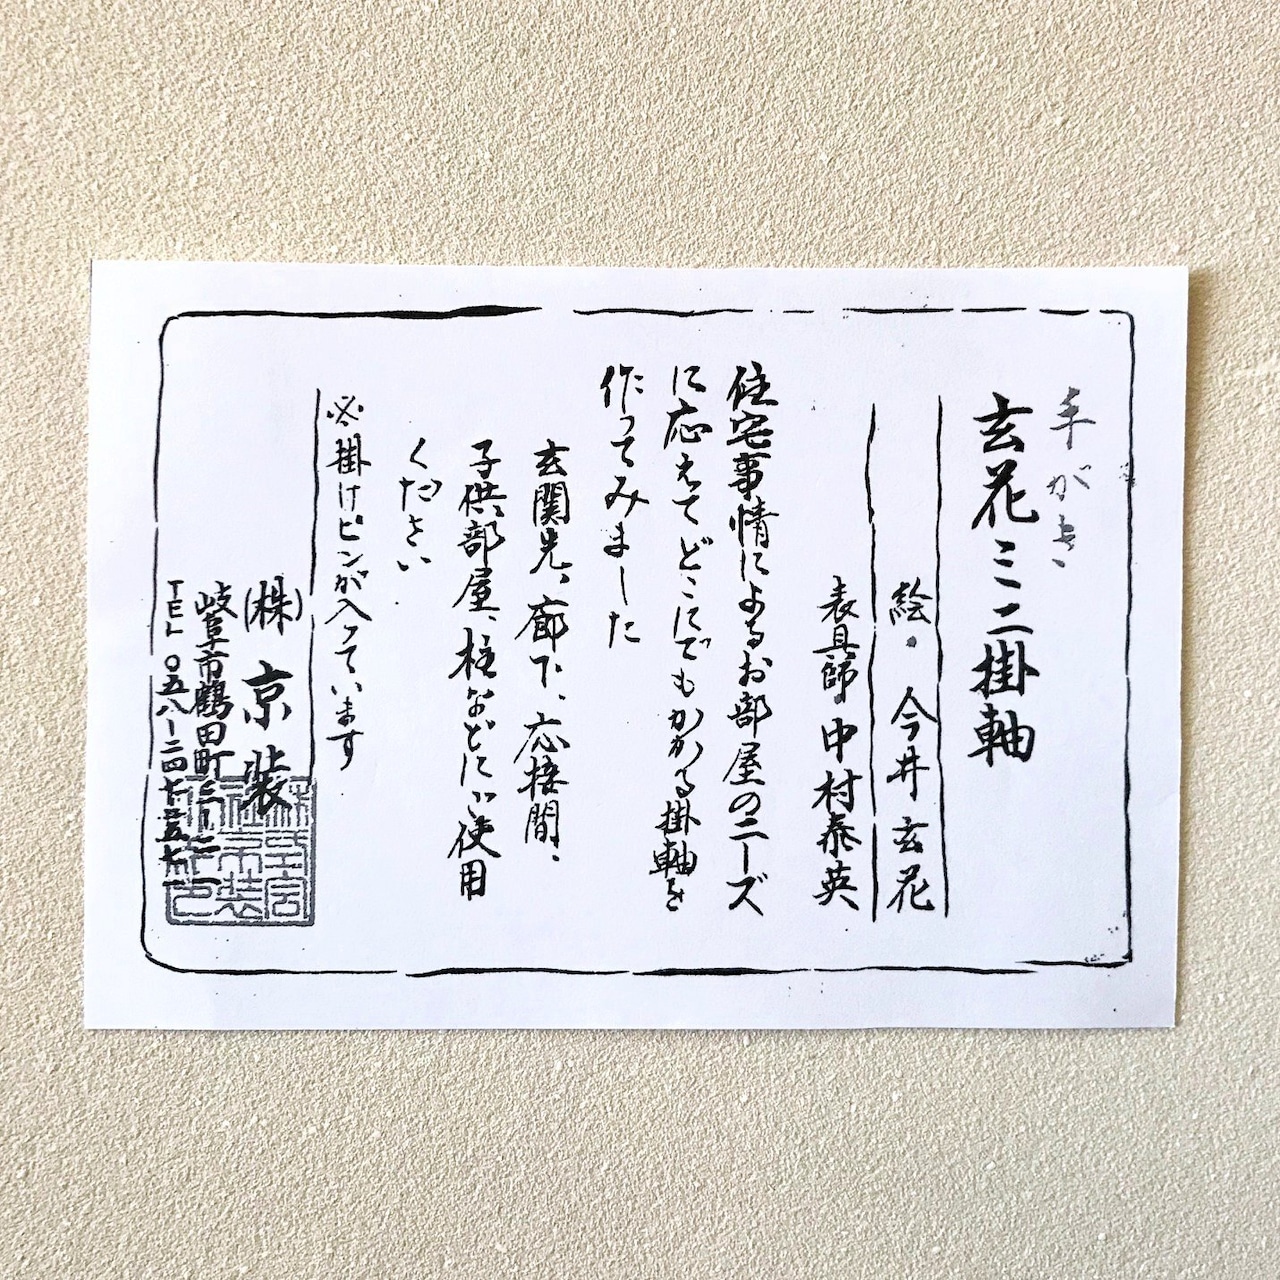 手がき
玄花ミニ掛軸
絵・今井玄花
表具師 中村泰英
住宅事情によるお部屋のニーズ
に応えてどこにでもかかる掛軸を
作ってみました
玄関先、廊下、応接間、
子供部屋、柱などにご使用
ください
※掛けピンが入っています
(株)京装
岐阜市鶴田町三ー二一
TEL 〇五八ー二四七